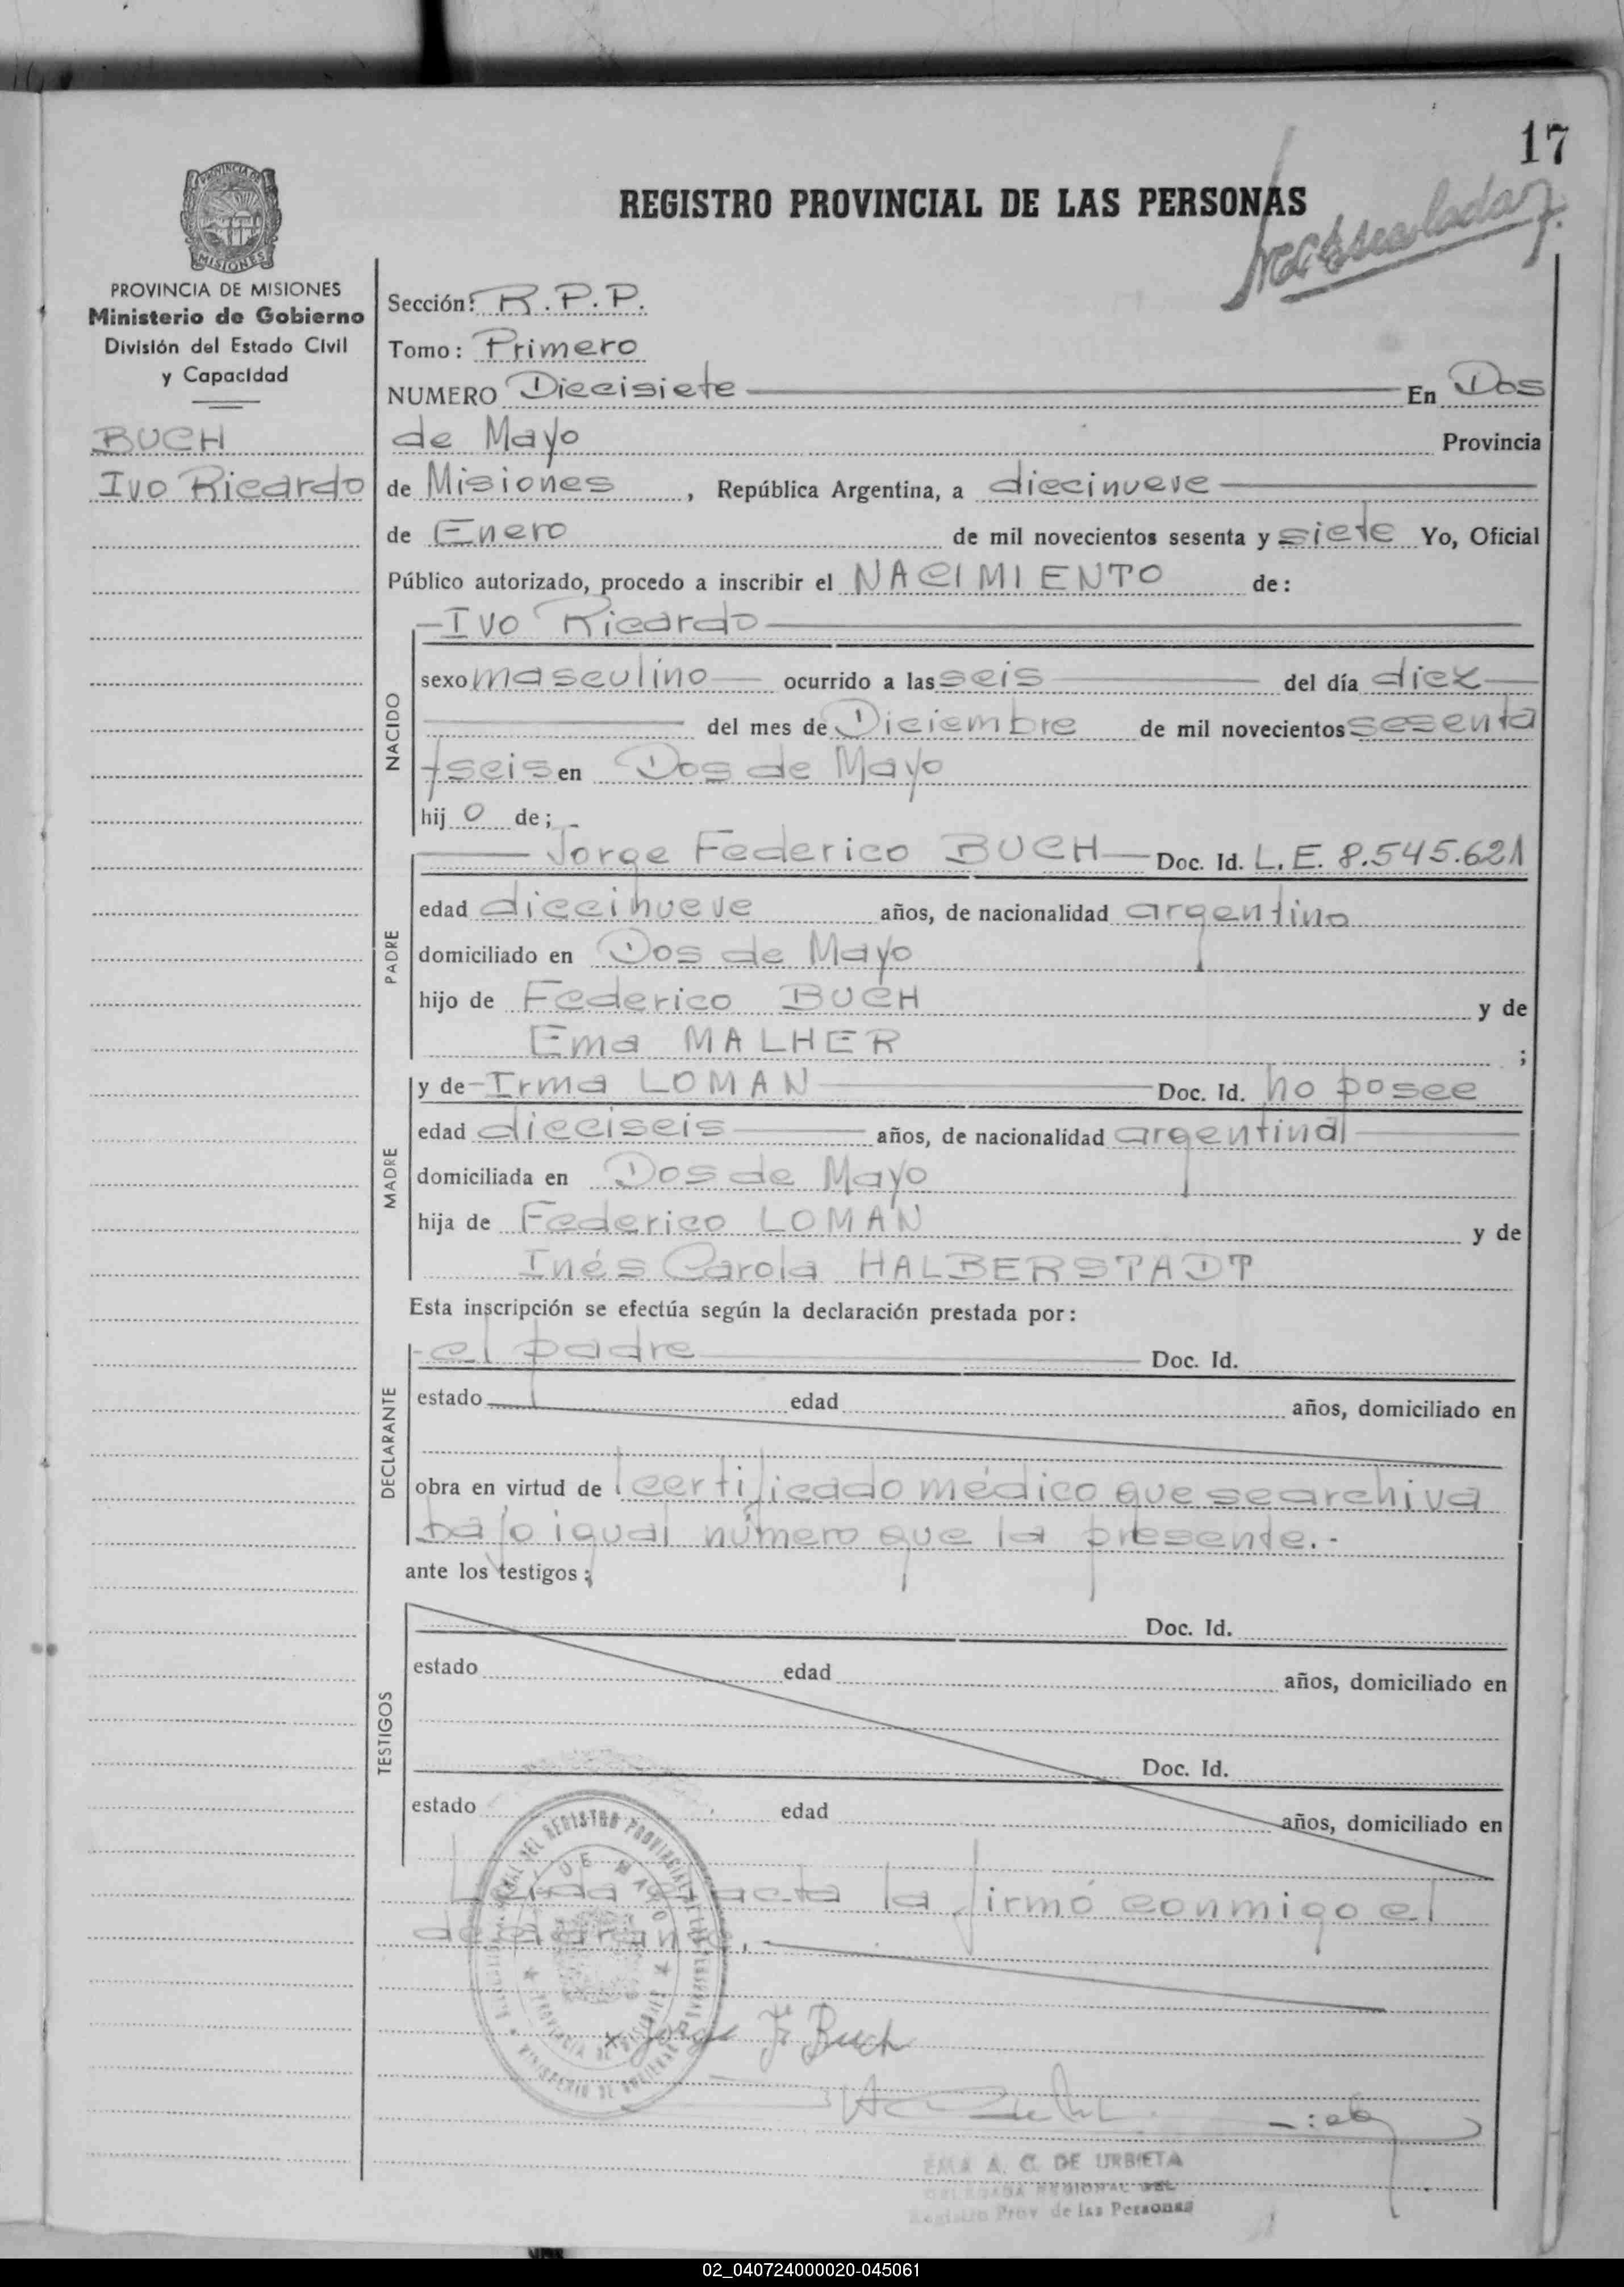 17
REGISTRO PROVINCIAL DE LAS PERSONAS
PROVINCIA DE
MISIONES
PROVINCIA DE MISIONES
Ministerio de Gobierno
División del Estado Civil
y Capacidad
BUCH
Ivo Ricardo
Sección: R.P.P.
Tomo: Primero
NUMERO Diecisiete En Dos
de Mayo Provincia
de Misiones, República Argentina, a diecinueve
de Enero de mil novecientos sesenta y siete Yo, Oficial
Público autorizado, procedo a inscribir el NACIMIENTO de:
NACIDO
-Ivo Ricardo
sexo masculino ocurrido a las seis del día diez
del mes de Diciembre de mil novecientos sesenta
y seis en Dos de Mayo
hij o de;
PADRE
Jorge Federico BUCH Doc. Id. L.E. 8.545.621
edad diecinueve años, de nacionalidad argentino
domiciliado en Dos de Mayo
hijo de Federico BUCH y de
Ema MALHER ;
MADRE
y de -Irma LOMAN Doc. Id. no posee
edad dieciseis años, de nacionalidad argentina
domiciliada en Dos de Mayo
hija de Federico LOMAN y de
Inés Carola HALBERSTADT
Esta inscripción se efectúa según la declaración prestada por:
DECLARANTE
-el padre Doc. Id.
estado edad años, domiciliado en
obra en virtud de l certificado médico que se archiva
bajo igual número que la presente.-
ante los testigos;
TESTIGOS
Doc. Id.
estado edad años, domiciliado en
Doc. Id.
estado edad años, domiciliado en
Leída el acta la firmó conmigo el
declarante.
x Jorge F. Buch
EMA A. C. DE URBIETA
DELEGADA REGIONAL DEL
Registro Prov. de las Personas
02_040724000020-045061